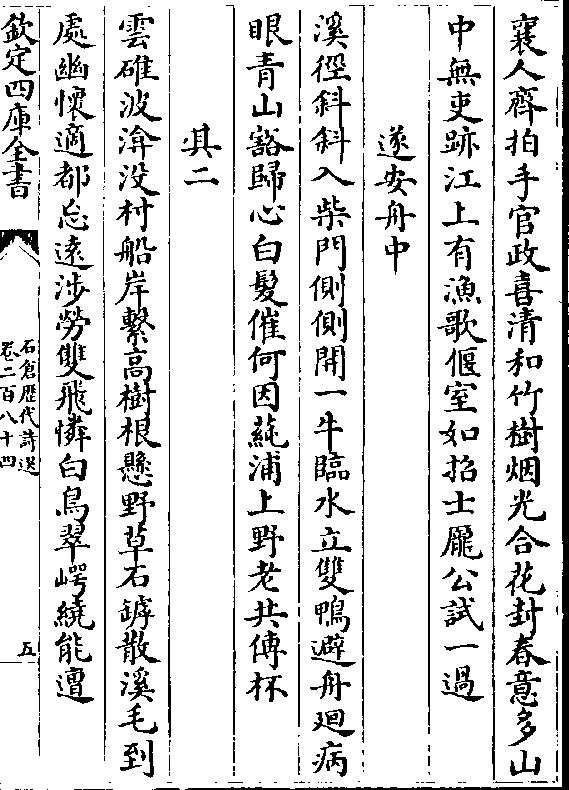 襄人齊拍手官政喜清和竹樹烟光合花封春意多山
中無吏跡江上有漁歌偃室如招士龎公試一過
遂安舟中
溪徑斜斜入柴門側側開一牛臨水立雙鴨避舟廻病
眼青山豁歸心白髮催何因蒓浦上野老共傳杯
其二
雲碓波渰没村船岸繫高樹根懸野草石罅散溪毛到
處幽懷適都忘遠涉勞雙飛憐白鳥翠崿繞能遭
欽定四庫全書
石倉歴代詩選
卷二百八十四
五